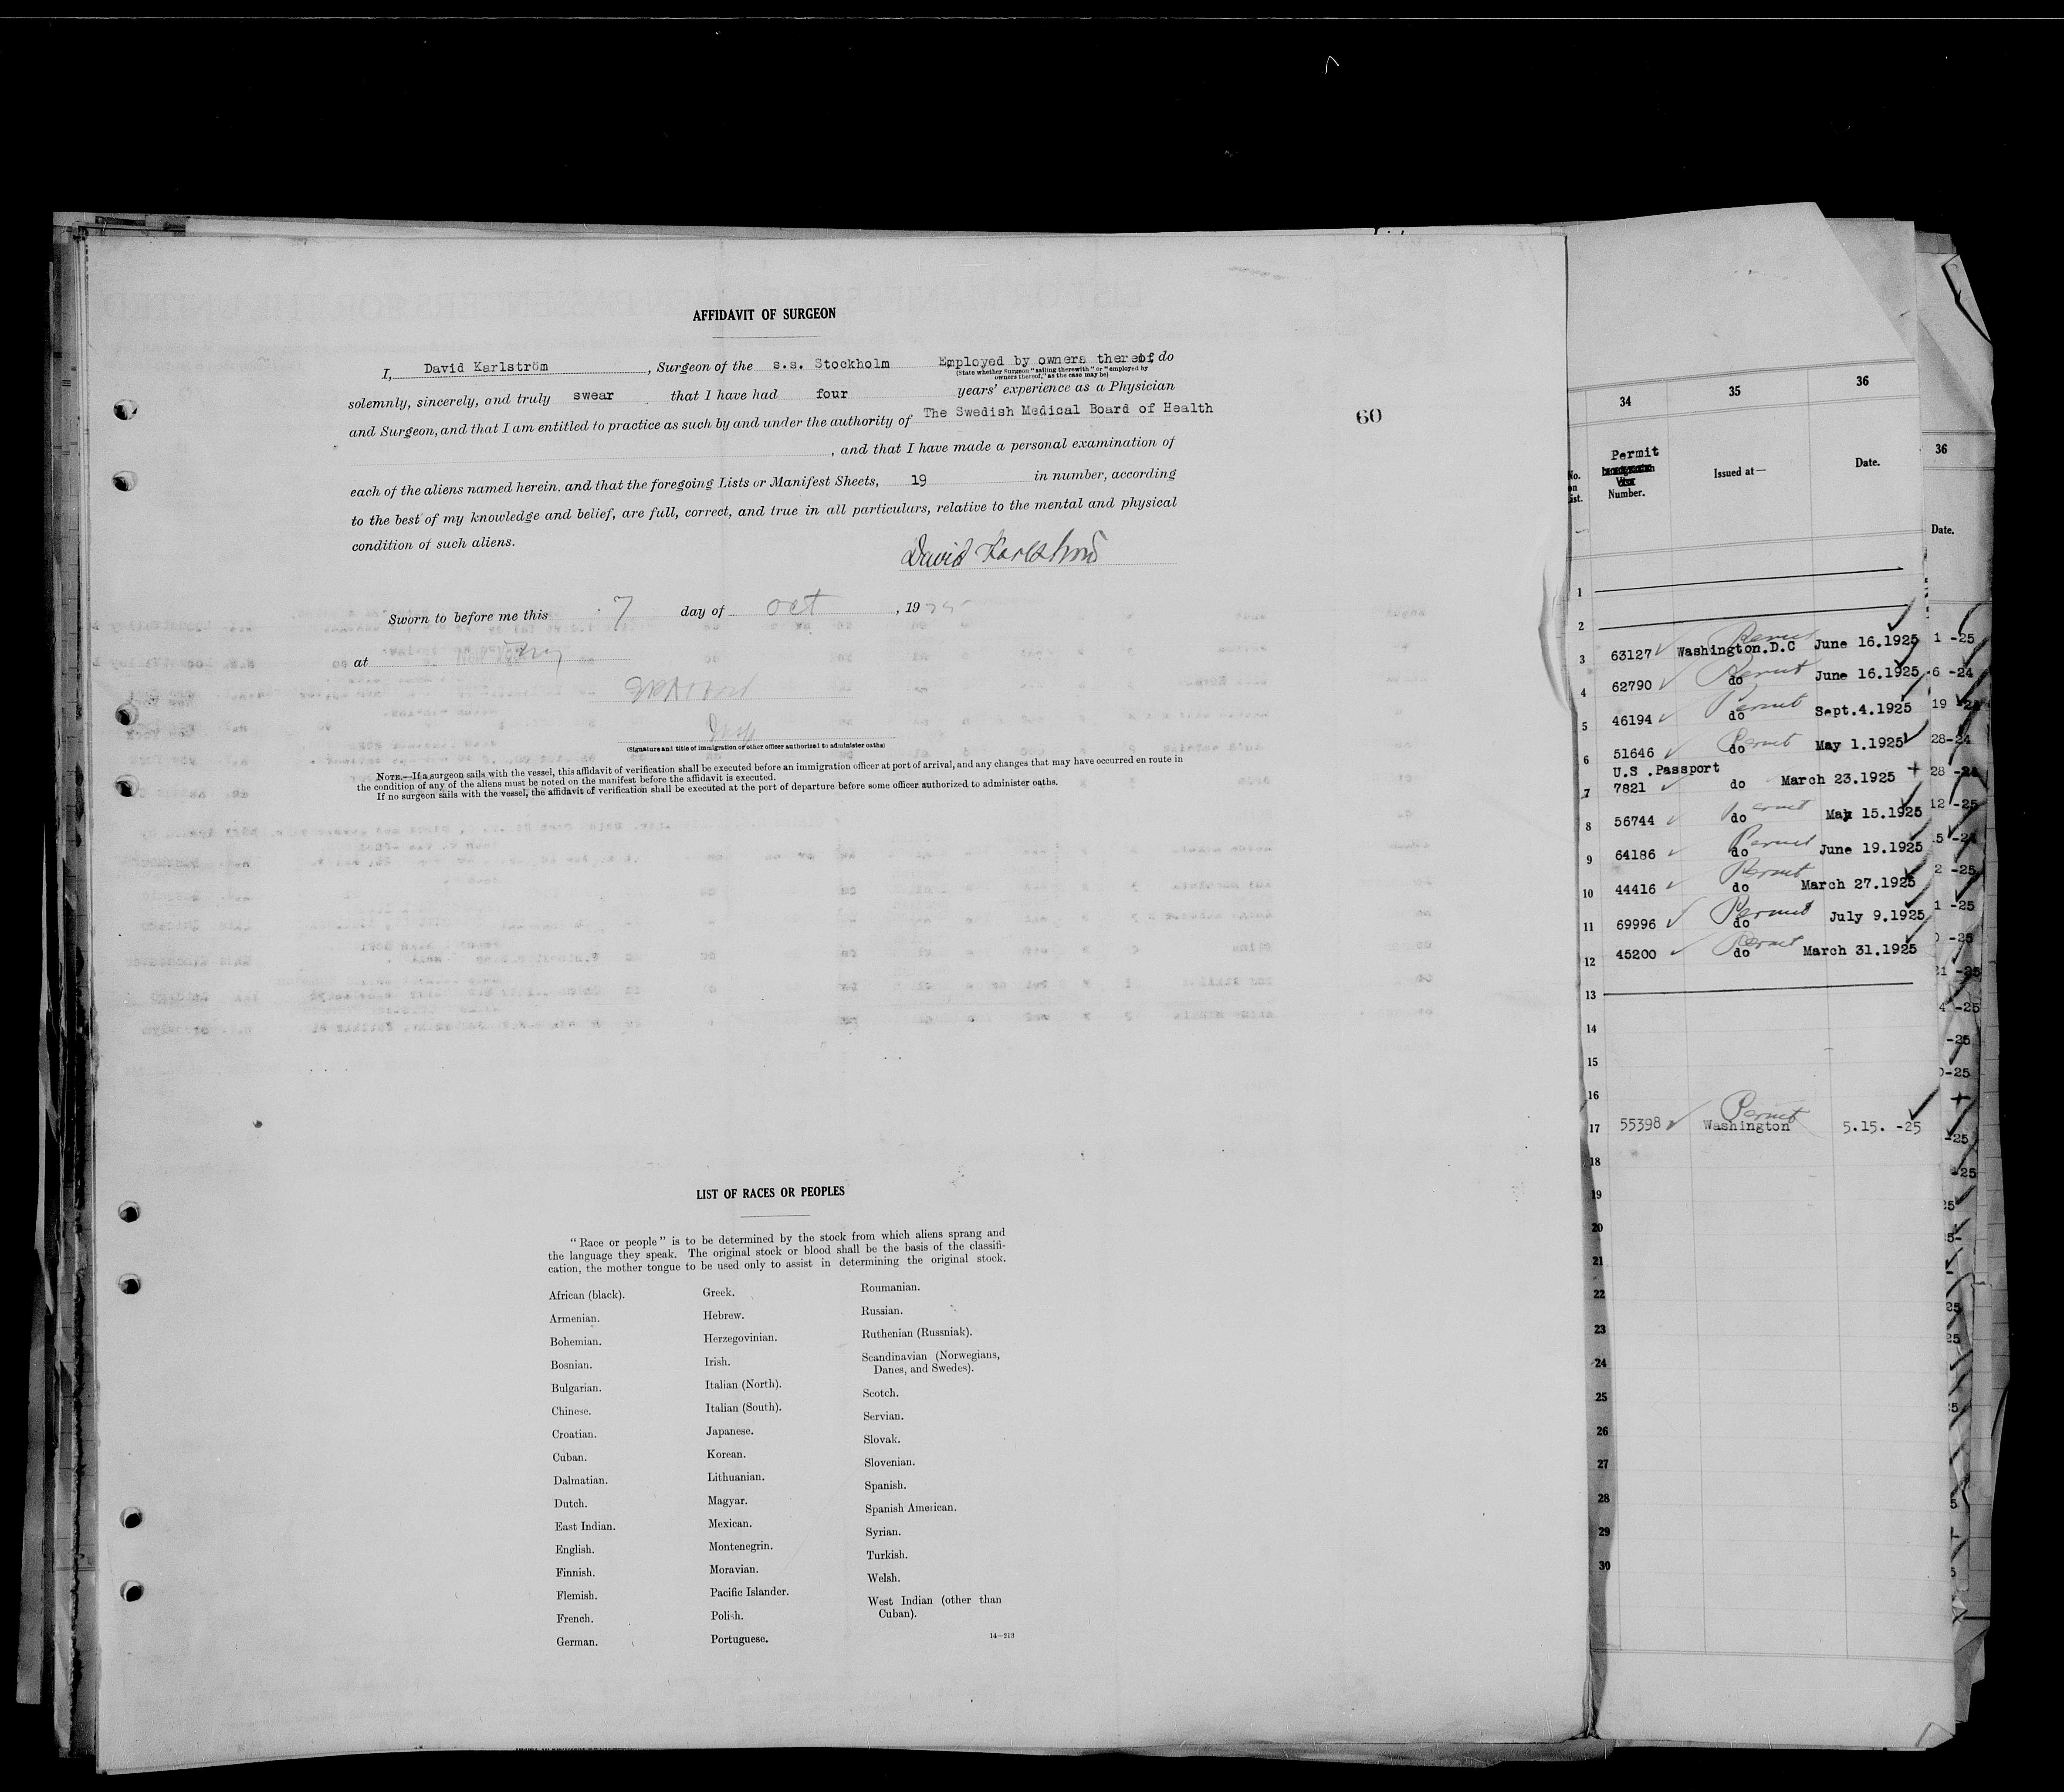 AFFIDAVIT OF SURGEON
I, David Karlström, Surgeon of the s.s. Stockholm Employed by owners thereof, do
(State whether Surgeon "sailing therewith" or "employed by
owners thereof," as the case may be)
solemnly, sincerely, and truly swear that I have had four years' experience as a Physician
and Surgeon, and that I am entitled to practice as such by and under the authority of The Swedish Medical Board of Health
, and that I have made a personal examination of
60
each of the aliens named herein, and that the foregoing Lists or Manifest Sheets, 19 in number, according
to the best of my knowledge and belief, are full, correct, and true in all particulars, relative to the mental and physical
condition of such aliens.
David Karlström
Sworn to before me this 7 day of Oct, 1925
at
(Signature and title of immigration or other officer authorized to administer oaths)
NOTE.—If a surgeon sails with the vessel, this affidavit of verification shall be executed before an immigration officer at port of arrival, and any changes that may have occurred en route in
the condition of any of the aliens must be noted on the manifest before the affidavit is executed.
If no surgeon sails with the vessel, the affidavit of verification shall be executed at the port of departure before some officer authorized to administer oaths.
LIST OF RACES OR PEOPLES
"Race or people" is to be determined by the stock from which aliens sprang and
the language they speak. The original stock or blood shall be the basis of the classifi-
cation, the mother tongue to be used only to assist in determining the original stock.
African (black).
Armenian.
Bohemian.
Bosnian.
Bulgarian.
Chinese.
Croatian.
Cuban.
Dalmatian.
Dutch.
East Indian.
English.
Finnish.
Flemish.
French.
German.
Greek.
Hebrew.
Herzegovinian.
Irish.
Italian (North).
Italian (South).
Japanese.
Korean.
Lithuanian.
Magyar.
Mexican.
Montenegrin.
Moravian.
Pacific Islander.
Polish.
Portuguese.
Roumanian.
Russian.
Ruthenian (Russniak).
Scandinavian (Norwegians,
Danes, and Swedes).
Scotch.
Servian.
Slovak.
Slovenian.
Spanish.
Spanish American.
Syrian.
Turkish.
Welsh.
West Indian (other than
Cuban).
14—213
34 35 36
No. on list. Permit Number. Issued at— Date.
1
2
3 63127 Permit Washington.D.C June 16.1925
4 62790 Permit do June 16.1925
5 46194 Permit do Sept.4.1925
6 51646 Permit do May 1.1925
U.S .Passport
7 7821 do March 23.1925
8 56744 Permit do May 15.1925
9 64186 Permit do June 19.1925
10 44416 Permit do March 27.1925
11 69996 Permit do July 9.1925
12 45200 Permit do March 31.1925
13
14
15
16
17 55398 Permit Washington 5.15. -25
18
19
20
21
22
23
24
25
26
27
28
29
30
36
Date.
1 -25
6 -24
19
28-24
28 -24
12 -25
5 -24
2 -25
1 -25
-25
21 -25
4 -25
-25
-25
-25
-25